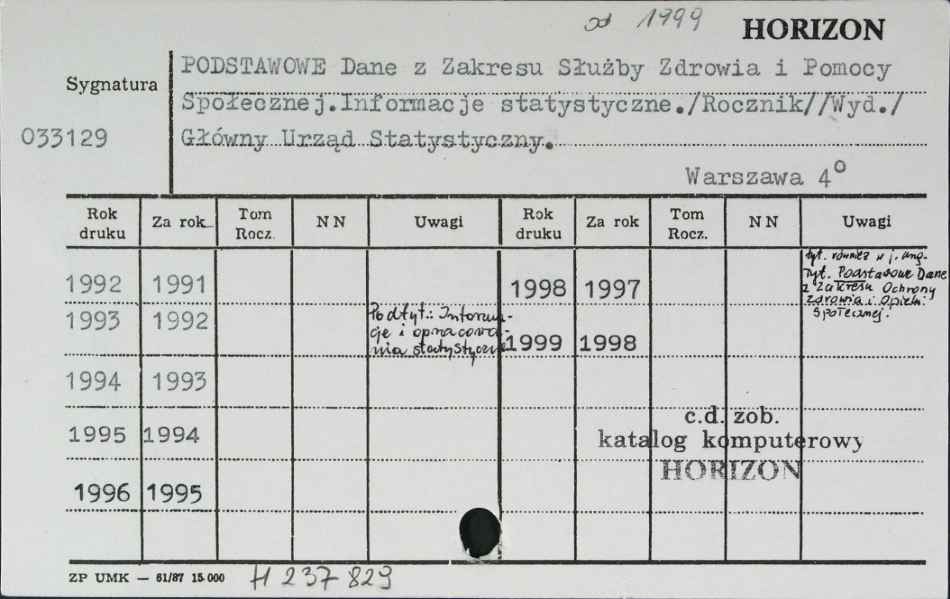 od 1999 HORIZON
PODSTAWOWE Dane z Zakresu Służby Zdrowia i Pomocy
Sygnatura
Społecznej.Informacje statystyczne./Rocznik//Wyd./
033129
Główny Urząd Statystyczny.
Warszawa 4°
Rok druku Za rok Tom Rocz. N N Uwagi Rok druku Za rok Tom Rocz. N N Uwagi
1992 1991
1998 1997
tyt. również w j. ang.
Tyt. Podstawowe Dane
z zakresu Ochrony
zdrowia i Opieki
społecznej.
1993 1992
Podtyt.: Informa-
cje i opracowa-
nia statystyczne
1999 1998
1994 1993
c.d. zob.
1995 1994
katalog komputerowy
HORIZON
1996 1995
ZP UMK — 61/87 15 000 H 237 829